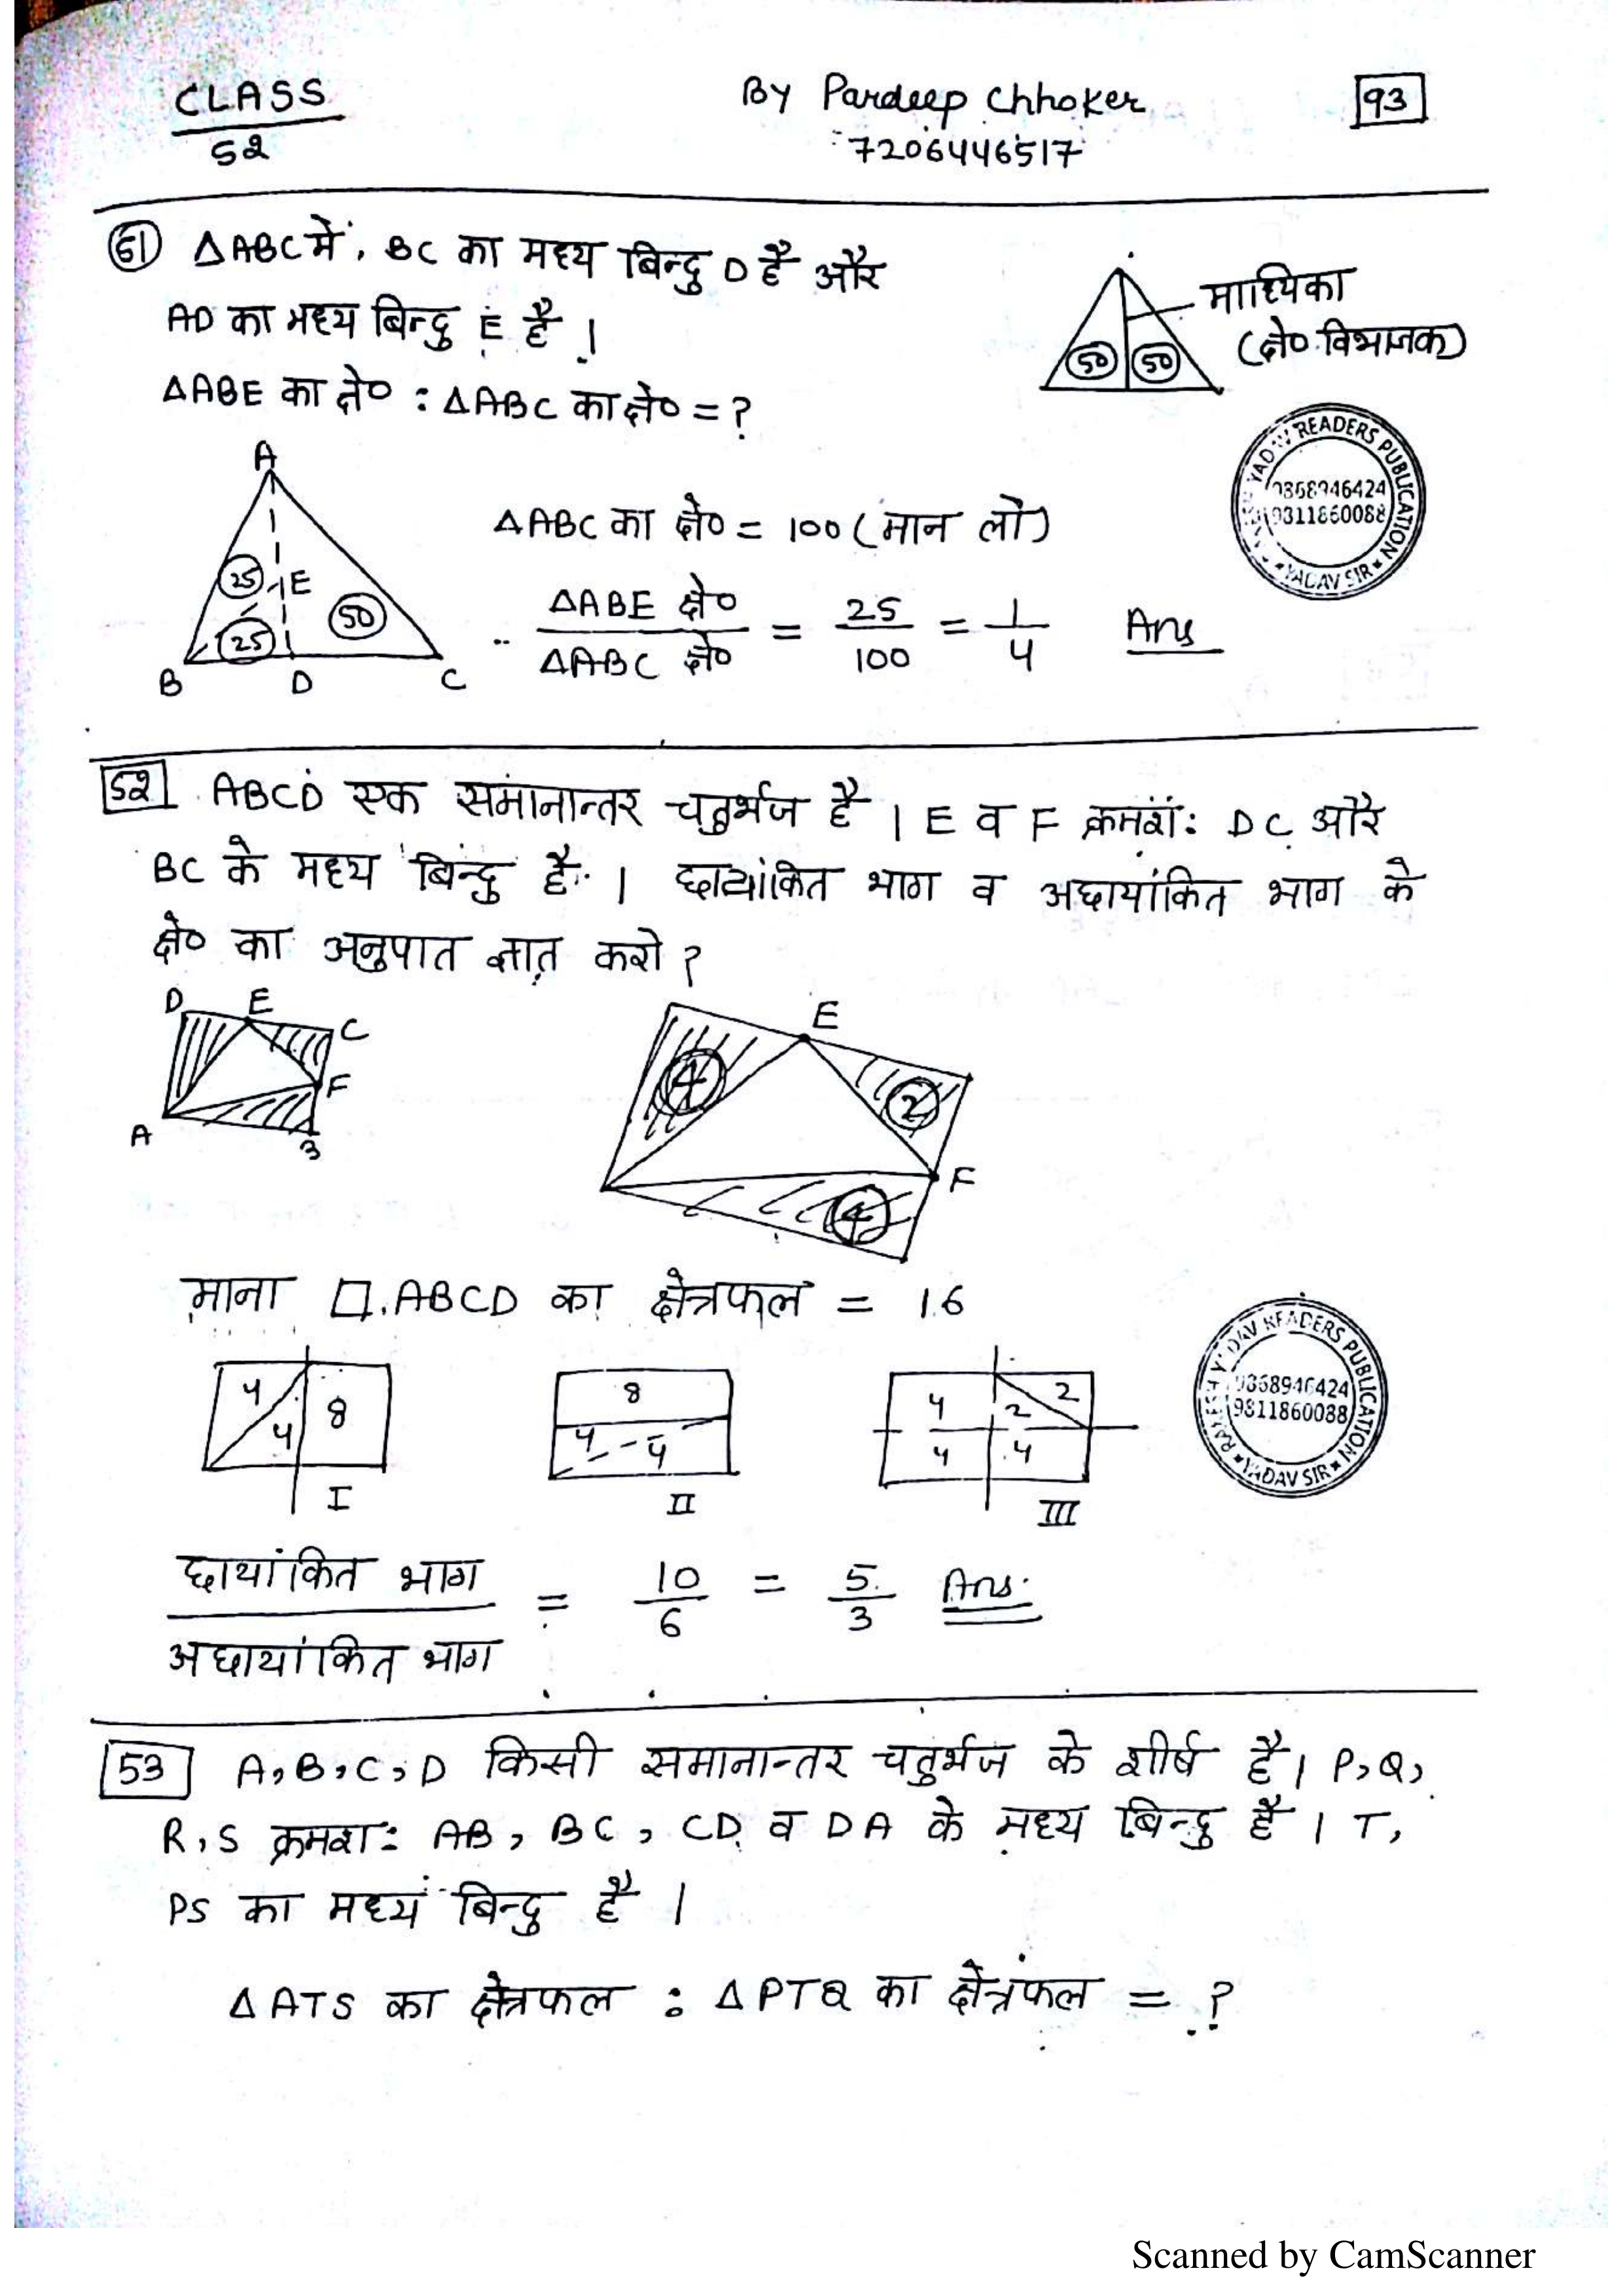 CLASS
52
By Pardeep Chhoker
7206446517
93
51 ΔABC में, BC का मध्य बिन्दु D है और
AD का मध्य बिन्दु E है।
ΔABE का क्षे० : ΔABC का क्षे० = ?
माध्यिका
(क्षे० विभाजक)
50 50
READERS PUBLICATION
9868946424
9811860088
YADAV SIR
A
25
E
50
25
B D C
ΔABC का क्षे० = 100 (मान लो)
ΔABE क्षे० / ΔABC क्षे० = 25/100 = 1/4 Ans
52 ABCD एक समानान्तर चतुर्भज है। E व F क्रमश: DC और
BC के मध्य बिन्दु है। छायांकित भाग व अछायांकित भाग के
क्षे० का अनुपात ज्ञात करो?
D E C
F
A B
E
4
2
F
4
माना □ ABCD का क्षेत्रफल = 16
4 4 8
I
8
4 - 4
II
4 2 2
4 4
III
RAKESH YADAV READERS PUBLICATION
9868946424
9811860088
YADAV SIR
छायांकित भाग / अछायांकित भाग = 10/6 = 5/3 Ans.
53 A, B, C, D किसी समानान्तर चतुर्भज के शीर्ष है। P, Q,
R, S क्रमश: AB, BC, CD व DA के मध्य बिन्दु है। T,
PS का मध्य बिन्दु है।
ΔATS का क्षेत्रफल : ΔPTQ का क्षेत्रफल = ?
Scanned by CamScanner